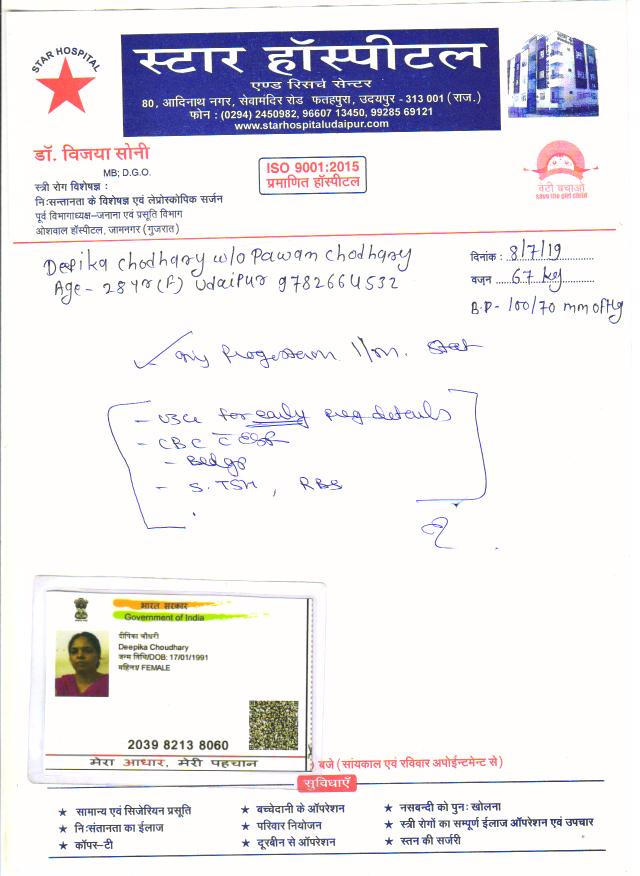 STAR HOSPITAL
स्टार हॉस्पीटल
एण्ड रिसर्च सेन्टर
80, आदिनाथ नगर, सेवामंदिर रोड फतहपुरा, उदयपुर - 313 001 (राज.)
फोन : (0294) 2450982, 96607 13450, 99285 69121
www.starhospitaludaipur.com
डॉ. विजया सोनी
MB; D.G.O.
स्त्री रोग विशेषज्ञ :
निःसन्तानता के विशेषज्ञ एवं लेप्रोस्कोपिक सर्जन
पूर्व विभागाध्यक्ष–जनाना एवं प्रसूति विभाग
ओशवाल हॉस्पीटल, जामनगर (गुजरात)
ISO 9001:2015
प्रमाणित हॉस्पीटल
बेटी बचाओ
save the girl child
Deepika Chodhary w/o Pawan Chodhary
Age - 28 yr (F) Udaipur 9782664532
दिनांक : 8/7/19
वजन 67 kg
B.P - 100/70 mm of Hg
Inj Progesteron I/m. Stat
- USG for early preg details
- CBC
- Bld gp
- S. TSH, RBS
भारत सरकार
Government of India
दीपिका चौधरी
Deepika Choudhary
जन्म तिथि/DOB: 17/01/1991
महिला/ FEMALE
2039 8213 8060
मेरा आधार, मेरी पहचान
बजे (सांयकाल एवं रविवार अपोईन्टमेन्ट से)
सुविधाएँ
★ सामान्य एवं सिजेरियन प्रसूति
★ बच्चेदानी के ऑपरेशन
★ नसबन्दी को पुनः खोलना
★ निःसंतानता का ईलाज
★ परिवार नियोजन
★ स्त्री रोगों का सम्पूर्ण ईलाज ऑपरेशन एवं उपचार
★ कॉपर–टी
★ दूरबीन से ऑपरेशन
★ स्तन की सर्जरी